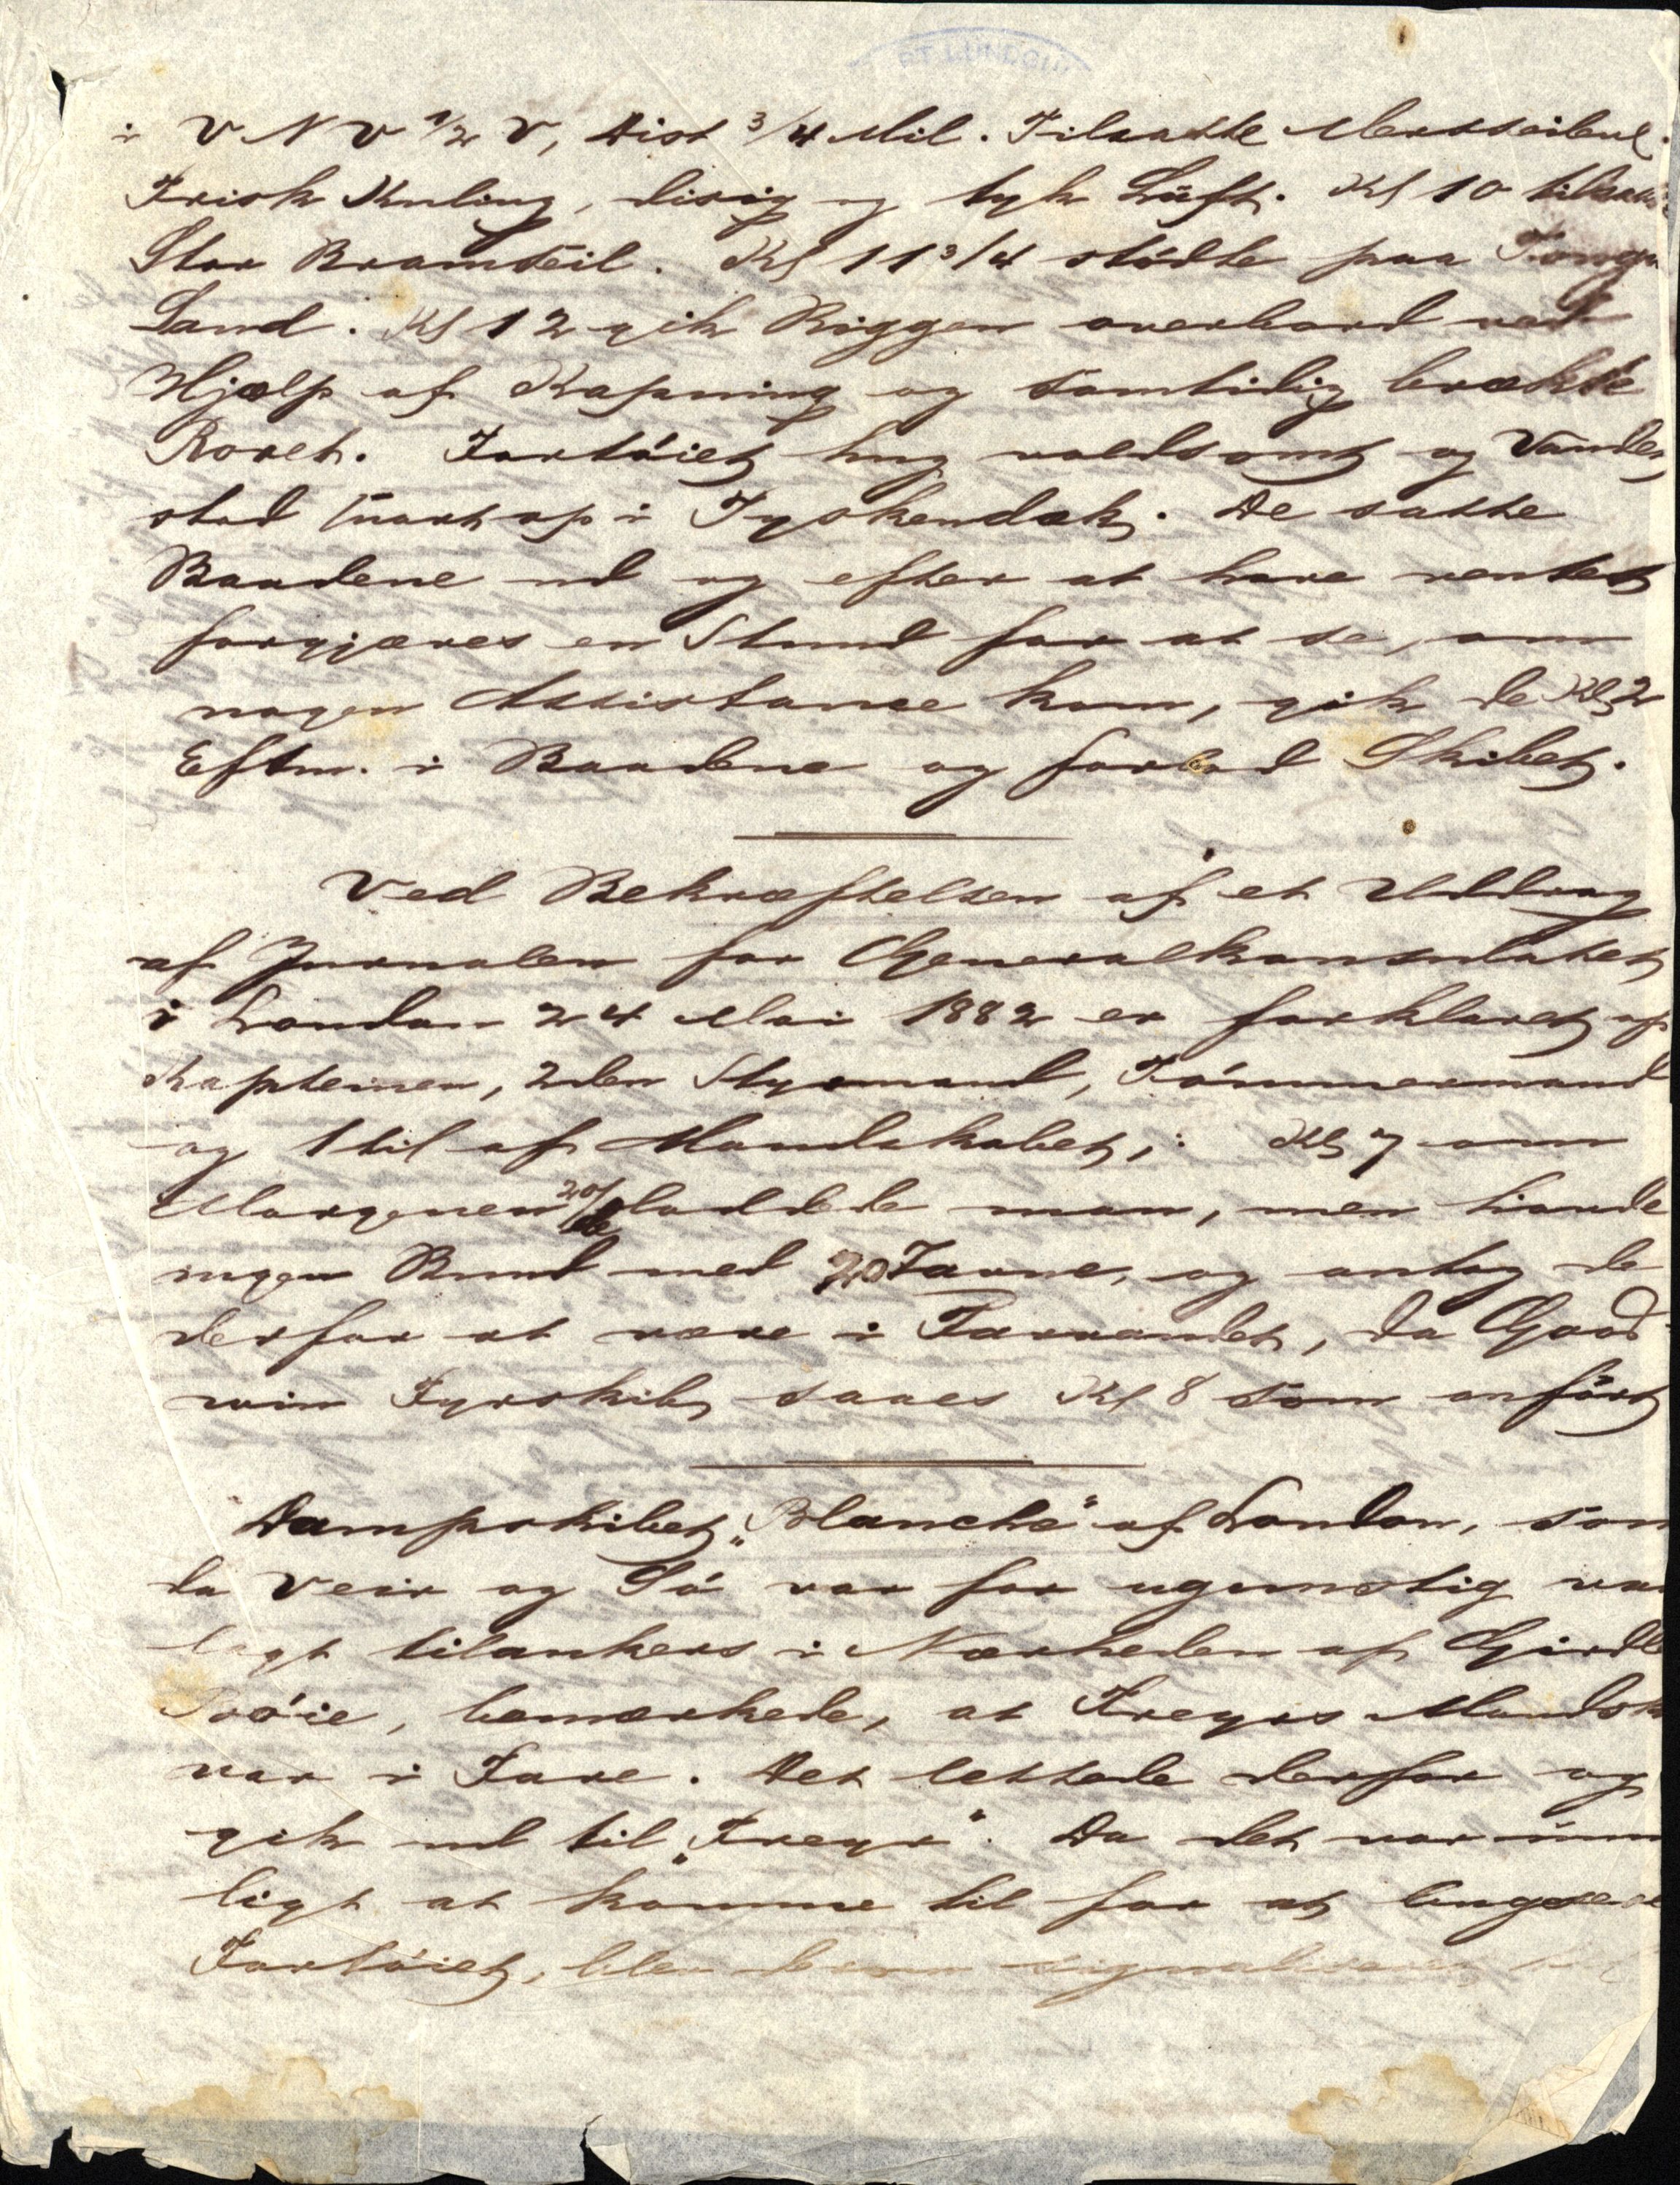 i V N V 1/2 V, Dist 3/4 Mil. Tilsatte Mersseilene.
Frisk Kuling, disig og tyk Luft. Kl 10 tilsatte
Stor Bramseil. Kl 11 3/4 stødte paa Tongue
Sand. Kl 12 gik Riggen overbord ved
Hjælp af Kapning og samtidig brækkte
Roret. Fartøiet hug voldsomt og Vandet
stod snart op i Tyskendæk. De satte
Baadene ud og efter at have ventet
forgjæves en Stund for at se, om
nogen Assistance kom, gik de Kl 2
Eftm. i Baadene og forlod Skibet.
Ved Bekræftelsen af et Uddrag
af Jurnalen for Generalkonsulatet
i London 24 Mai 1882 er forklaret af
Kapteinen, 2den Styrmand, Tømmermand
og 1 til af Mandskabet,: Kl 7 om
Morgenen 20/ loddede man, men havde
ingen Bund med 20 Favne, og antog de
derfor at være i Farvandet, da Good
win Fyrskib saaes Kl 8 som anført
Dampskibet „Blanche" af London, som
da Veir og Sø var for ugunstig var
lagt tilankers i Nærheden af Girdle
Bøie, bemærkede, at Freyrs Mandsk
var i Fare. Det lettede derfor og
gik ud til „Freyr". Da det var umu
ligt at komme til for at bugsere
Fartøiet, blev signaliseret